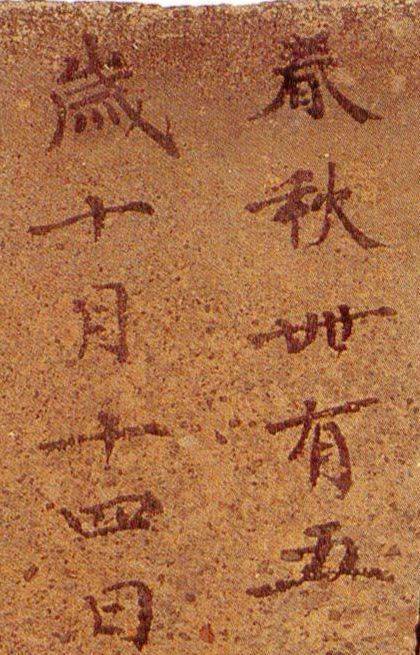 春秋卌有五
歲十月十四日